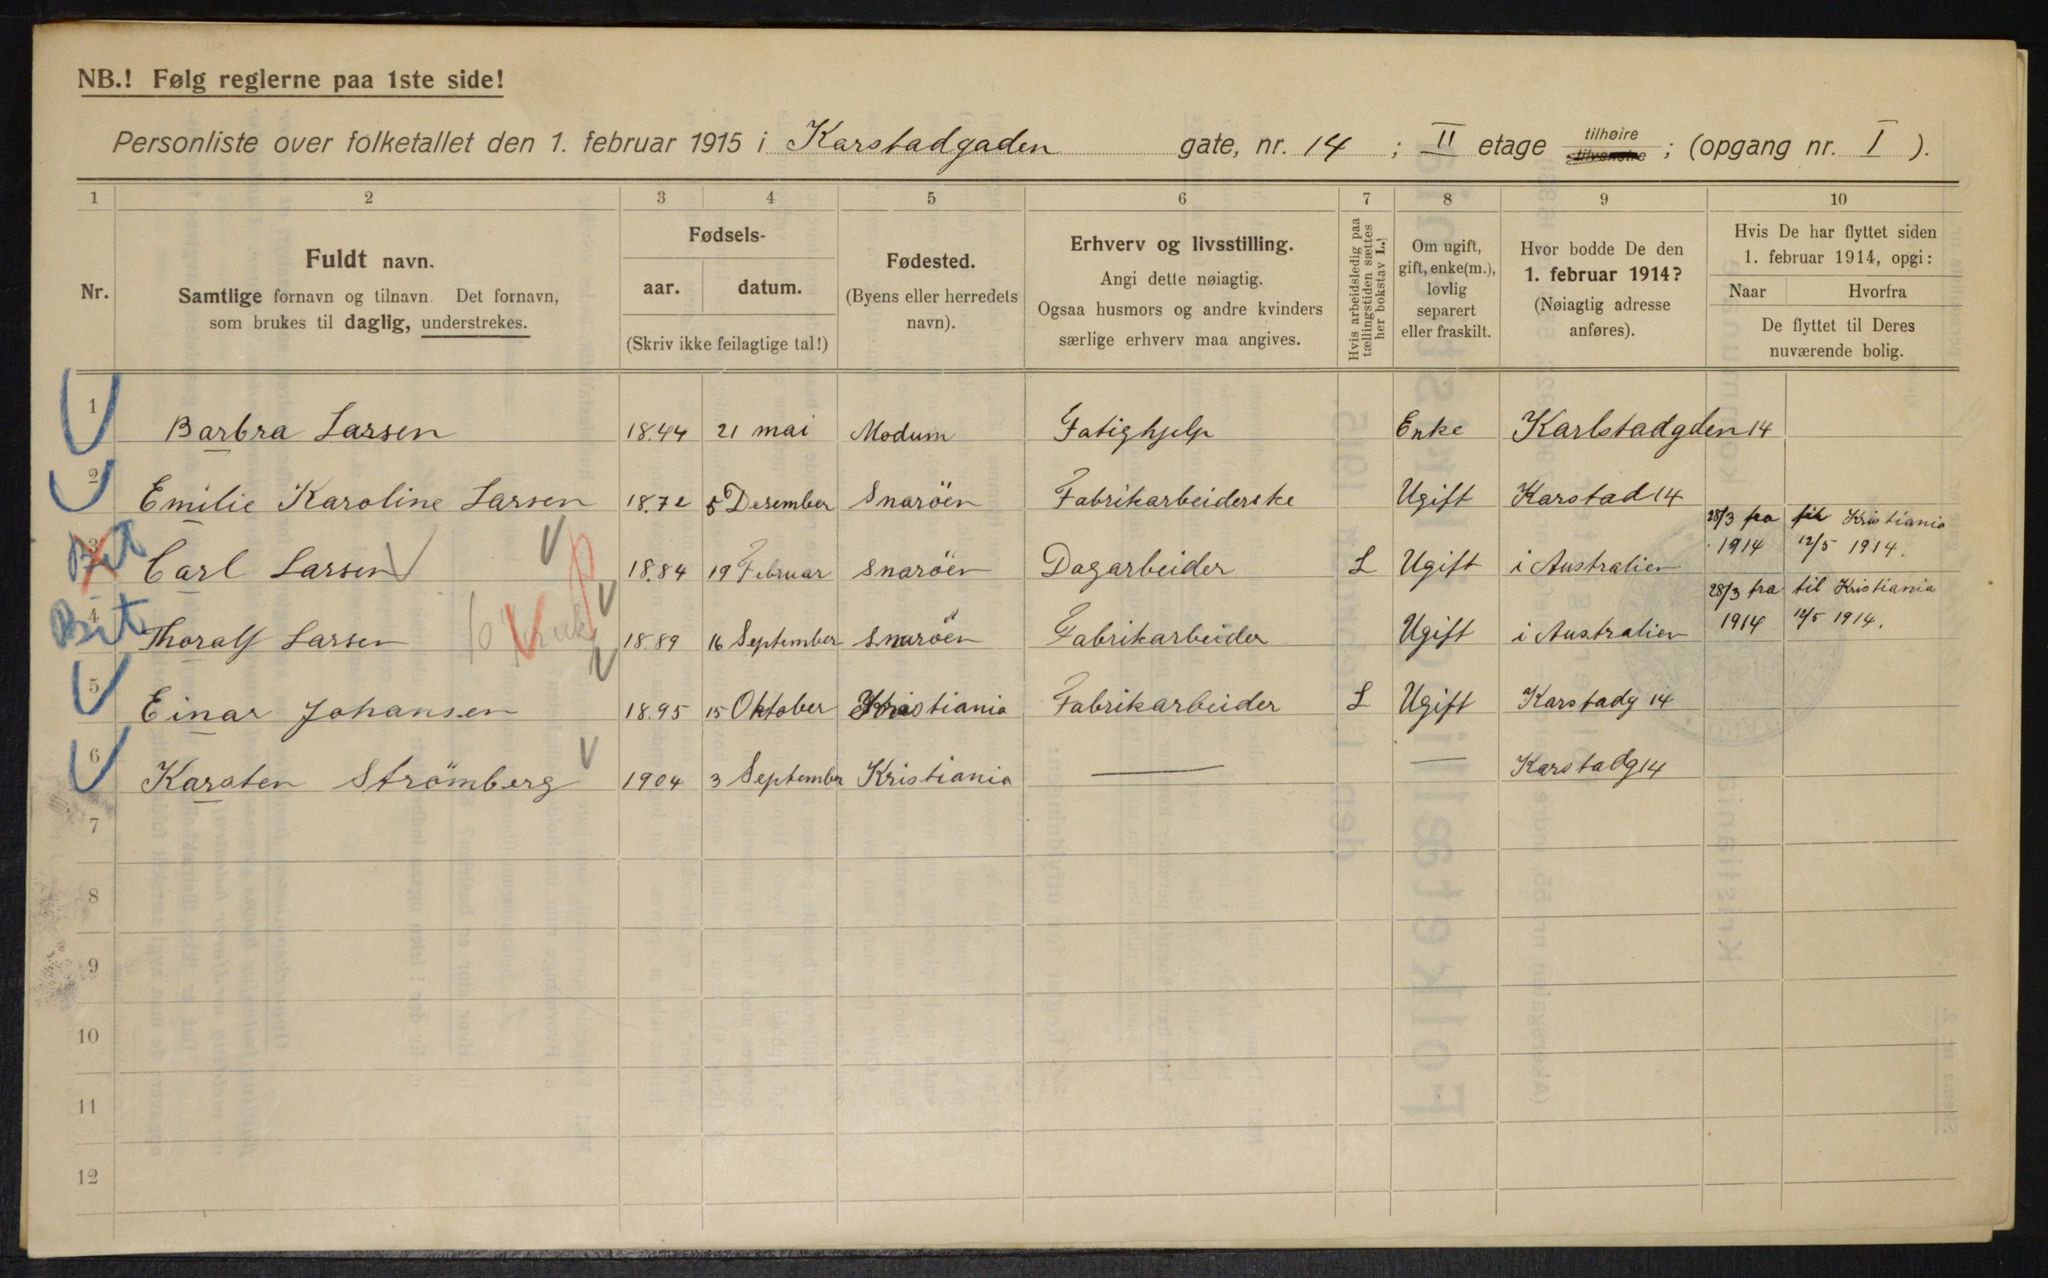 NB.! Følg reglerne paa 1ste side!
Personliste over folketallet den 1. februar 1915 i Karstadgaden gate, nr. 14 ; II etage tilhøire tilvenstre ; (opgang nr. I ).
1 2 3 4 5 6 7 8 9 10
Nr.
Fuldt navn.
Samtlige fornavn og tilnavn. Det fornavn,
som brukes til daglig, understrekes.
Fødsels-
aar. datum.
(Skriv ikke feilagtige tal!)
Fødested.
(Byens eller herredets
navn).
Erhverv og livsstilling.
Angi dette nøiagtig.
Ogsaa husmors og andre kvinders
særlige erhverv maa angives.
Hvis arbeidsledig paa
tællingstiden sættes
her bokstav L.)
Om ugift,
gift, enke(m.),
lovlig
separert
eller fraskilt.
Hvor bodde De den
1. februar 1914?
(Nøiagtig adresse
anføres).
Hvis De har flyttet siden
1. februar 1914, opgi:
Naar Hvorfra
De flyttet til Deres
nuværende bolig.
1 Barbra Larsen 18.44 21 mai Modum Fatighjelp Enke Karlstadgden 14
2 Emilie Karoline Larsen 18.72 5 Desember Snaröen Fabrikarbeiderske Ugift Karstad 14
3 Carl Larsen 18.84 19 Februar Snaröen Dagarbeider L Ugift i Australien 28/3 fra 1914 til Kristiania 12/5 1914.
4 Thoralf Larsen 18.89 16 September Snaröen Fabrikarbeider Ugift i Australien 28/3 fra 1914 til Kristiania 12/5 1914.
5 Einar Johansen 18.95 15 Oktober Kristiania Fabrikarbeider L Ugift Karstadg 14
6 Karsten Strömberg 1904 3 September Kristiania — — Karstadg 14
7
8
9
10
11
12